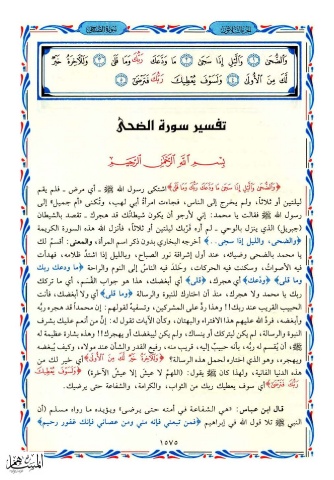 سورة الضحى
وَالضُّحَىٰ ۝ وَاللَّيْلِ إِذَا سَجَىٰ ۝ مَا وَدَّعَكَ رَبُّكَ وَمَا قَلَىٰ ۝ وَلَلْآخِرَةُ خَيْرٌ
لَّكَ مِنَ الْأُولَىٰ ۝ وَلَسَوْفَ يُعْطِيكَ رَبُّكَ فَتَرْضَىٰ ۝
تفسير سورة الضحى
بِسْمِ اللَّهِ الرَّحْمَٰنِ الرَّحِيمِ
﴿وَالضُّحَىٰ وَاللَّيْلِ إِذَا سَجَىٰ مَا وَدَّعَكَ رَبُّكَ وَمَا قَلَىٰ﴾ اشتكى رسول الله ﷺ - أي مرض - فلم يقم
ليلتين أو ثلاثاً، ولم يخرج إلى الناس، فجاءت امرأة أبي لهب، وتُكنى «أم جميل» إلى
رسول الله ﷺ فقالت يا محمد: إني لأرجو أن يكون شيطانك قد هجرك - تقصد بالشيطان
(جبريل) الذي ينزل بالوحي - لم أره قَرِبَك ليلتين أو ثلاثاً، فأنزل الله هذه السورة الكريمة
﴿والضحى، والليل إذا سجى . .﴾ أخرجه البخاري بدون ذكر اسم المرأة، والمعنى: أقسم لك
يا محمد بالضحى وضيائه، عند أول إشراقة نور الصباح، وبالليل إذا اشتد ظلامه، فهدأت
فيه الأصوات، وسكنت فيه الحركات، وخَلَدَ فيه الناسُ إلى النوم والراحة ﴿ما ودعك ربك
وما قلى﴾ ﴿ودَّعك﴾ أي هجرك، ﴿قلى﴾ أي أبغضك، هذا هو جواب القسم، أي ما تركك
ربك يا محمد ولا هجرك، منذ أن اختارك للنبوة والرسالة ﴿وما قلى﴾ أي ولا أبغضك، فأنت
الحبيب القريب عند ربك!! وهذا ردٌّ على المشركين، وتسفيهٌ لقولهم: إن محمداً قد هجره ربُّه
وأبغضه، فردَّ الله عليهم هذا الافتراء والبهتان، وكأن الآيات تقول له: إنَّ من أنعم عليك بشرف
النبوة والرسالة، لم يكن ليتركك أو ينساك، ولم يكن ليبغضك أو يهجرك!! وهذه بشارة عظيمة له
ﷺ، أن يُقسم له ربُّه، بأنه حبيبٌ إليه، قريب منه، رفيع القدر والشأن عند مولاه، وكيف يُبغضه
ويهجره، وهو الذي اختاره لحمل هذه الرسالة؟ ﴿وَلَلْآخِرَةُ خَيْرٌ لَّكَ مِنَ الْأُولَىٰ﴾ أي خير لك من
هذه الدنيا الفانية، ولهذا كان ﷺ يقول: (اللهمَّ لا عيشَ إلا عيشُ الآخرة) ﴿وَلَسَوْفَ يُعْطِيكَ
رَبُّكَ فَتَرْضَىٰ﴾ أي سوف يعطيك ربك من الثواب، والكرامة، والشفاعة حتى يرضيك.
قال ابن عباس: «هي الشفاعة في أمته حتى يرضى» ويؤيده ما رواه مسلم (أن
النبي ﷺ تلا قول الله في إبراهيم ﴿فمن تبعني فإنه مني ومن عصاني فإنك غفور رحيم﴾
١٥٧٥